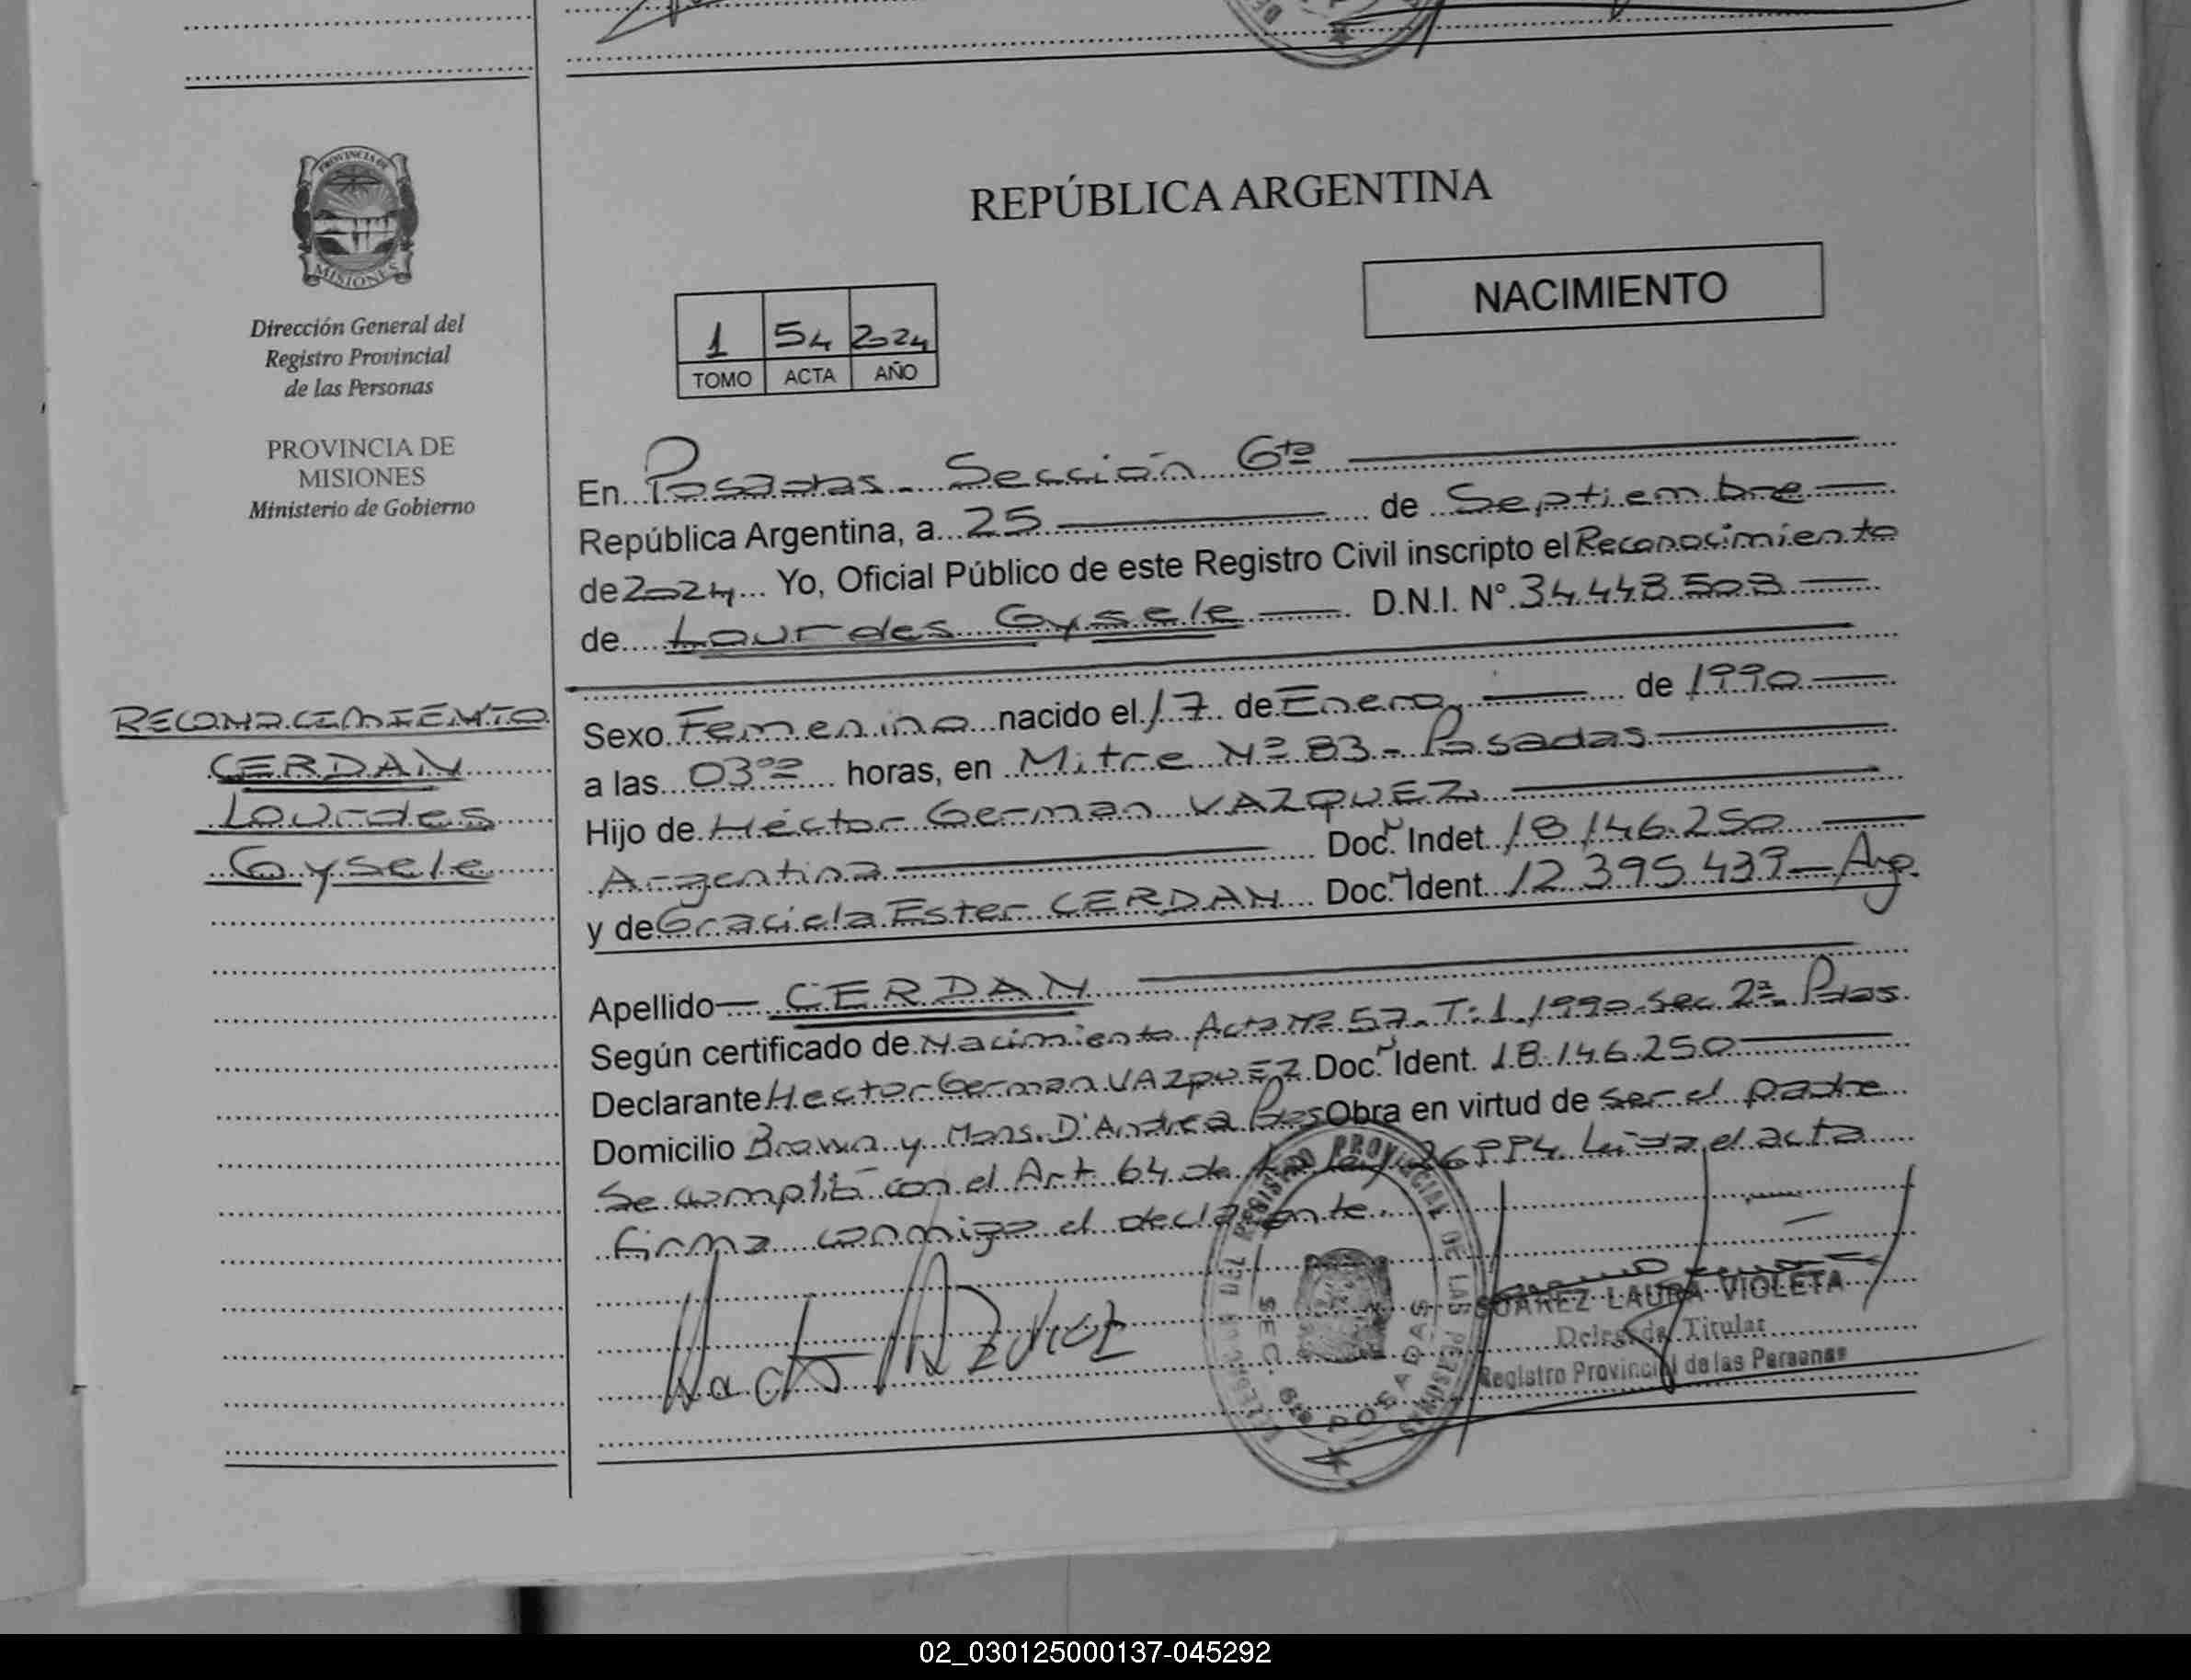 REPÚBLICA ARGENTINA
NACIMIENTO
PROVINCIA DE
MISIONES
Dirección General del
Registro Provincial
de las Personas
PROVINCIA DE
MISIONES
Ministerio de Gobierno
1 54 2024
TOMO ACTA AÑO
RECONOCIMIENTO
CERDAN
Lourdes
Gysele
En Posadas - Sección 6ta
República Argentina, a 25 de Septiembre
de 2024 Yo, Oficial Público de este Registro Civil inscripto el Reconocimiento
de Lourdes Gysele D.N.I. N° 34.448.508
Sexo Femenino nacido el 17 de Enero de 1990
a las 03ºº horas, en Mitre Nº 83 - Posadas
Hijo de Héctor German VAZQUEZ
Argentina Doc. Indet. 18.146.250
y de Graciela Ester CERDAN Doc. Ident. 12.395.439 - Arg.
Apellido CERDAN
Según certificado de Nacimiento Acta Nº 57 - T: 1 - 1990 - Sec 2ª - Pdas.
Declarante Hector German VAZQUEZ Doc. Ident. 18.146.250
Domicilio Brown y Mons. D'Andrea Pdas Obra en virtud de ser el padre
Se cumplió con el Art 64 de la ley 26994 Leída el acta
firma conmigo el declarante.
REGISTRO PROVINCIAL DE LAS PERSONAS
SEC. 6ta POSADAS
SUAREZ LAURA VIOLETA
Delegada Titular
Registro Provincial de las Personas
02_030125000137-045292